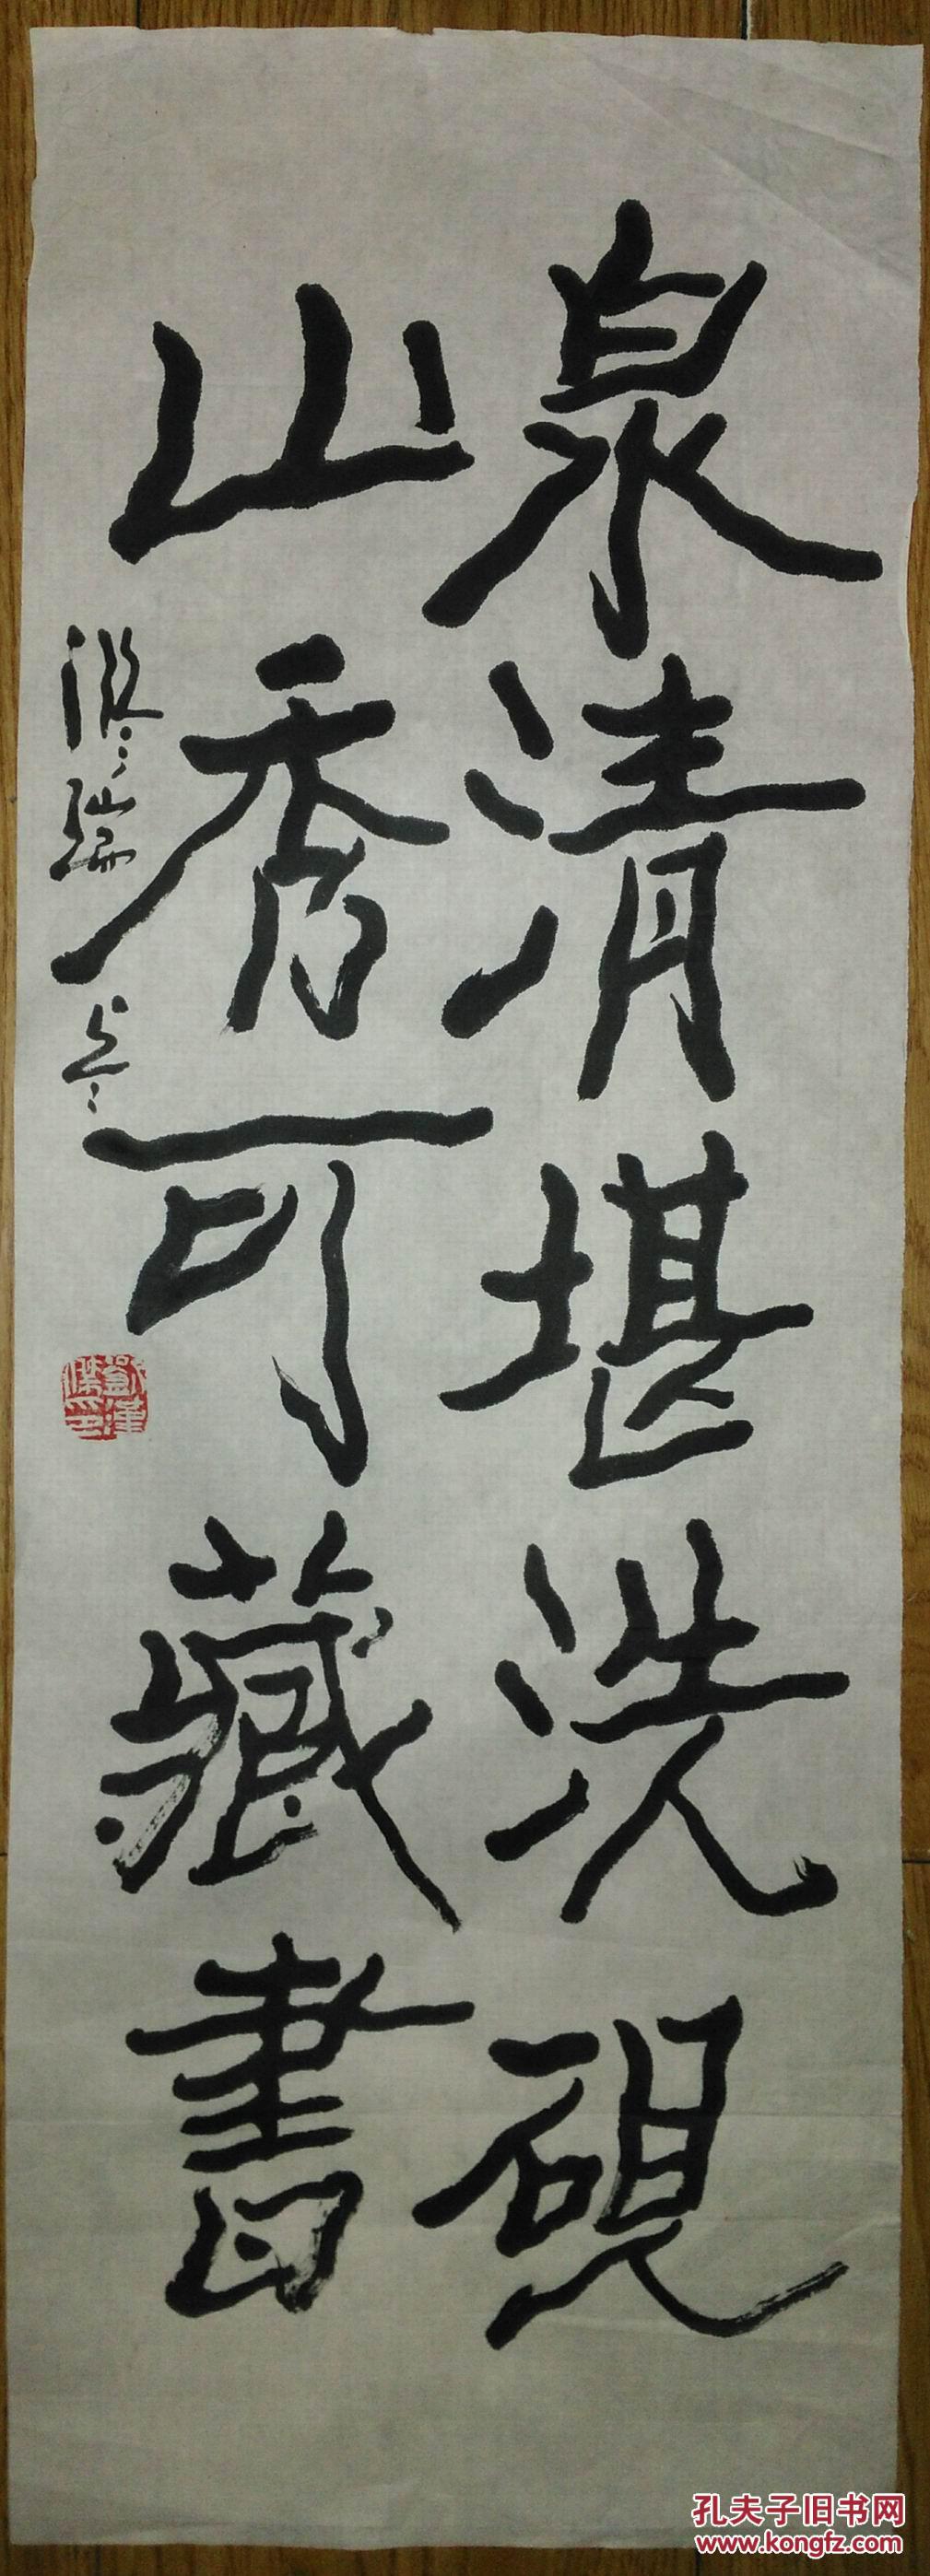 泉清堪洗硯
山秀可藏書
孔夫子旧书网
www.kongfz.com